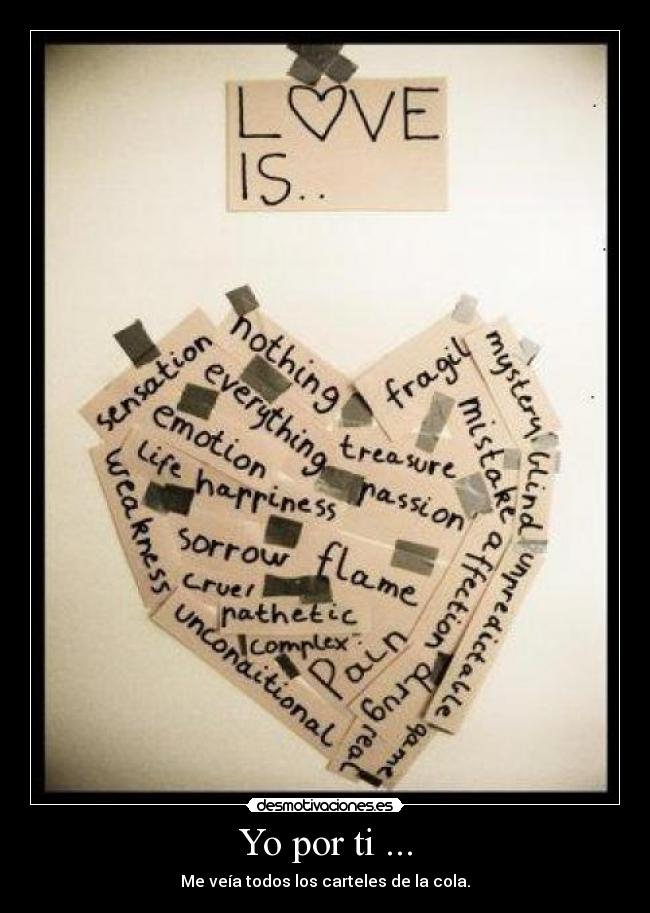 L♡VE
IS..
nothing
sensation
everything
fragil
mystery
emotion
treasure
mistake
blind
life
happiness
passion
weakness
sorrow
flame
affection
unpredictable
cruel
pathetic
complex
unconditional
pain
drug
real
game
desmotivaciones.es
Yo por ti ...
Me veía todos los carteles de la cola.